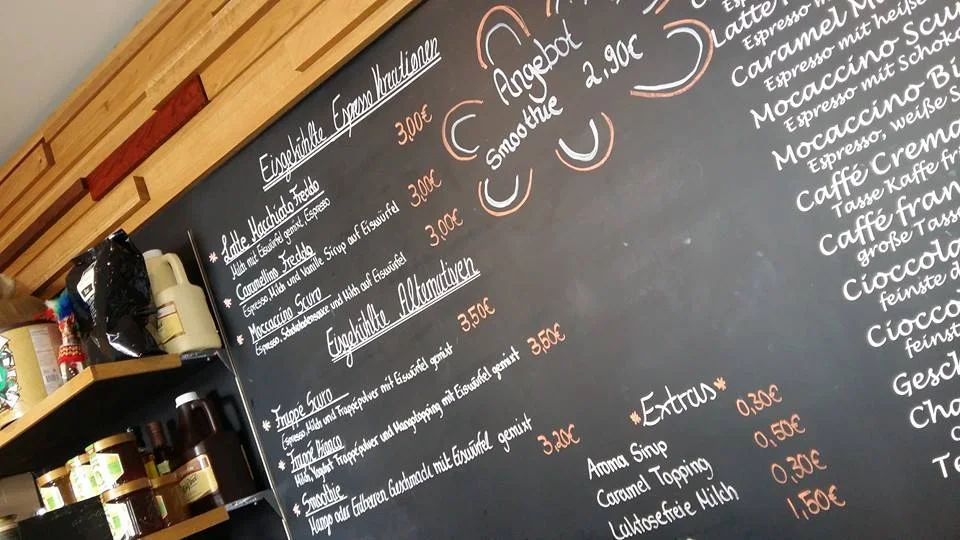 Eisgekühlte Espresso Kreationen
* Latte Macchiato Freddo 3,00€
Milch mit Eiswürfel gemixt, Espresso
* Caramellino Freddo 3,00€
Espresso, Milch und Vanille Sirup auf Eiswürfel
* Moccaccino Scuro 3,00€
Espresso, Schokoladensauce und Milch auf Eiswürfel
Eisgekühlte Alternativen
* Frappe Scuro 3,50€
Espresso, Milch und Frappepulver mit Eiswürfel gemixt
* Frappe Bianco 3,50€
Milch, Yoghurt Frappepulver und Mangotopping mit Eiswürfel gemixt
* Smoothie 3,20€
Mango oder Erdbeeren Geschmack mit Eiswürfel gemixt
Angebot
Smoothie 2,90€
*Extras*
Aroma Sirup 0,30€
Caramel Topping 0,50€
Laktosefreie Milch 0,30€
1,50€
Latte
Espresso
Caramel
Espresso mit heiße
Mocaccino Scu
Espresso mit Schok
Mocaccino Bi
Espresso, weiße S
Caffé Crema
Tasse Kaffe fri
Caffé fran
große Tass
Cioccola
feinste d
Ciocco
feinst
Gesch
Cha
Te